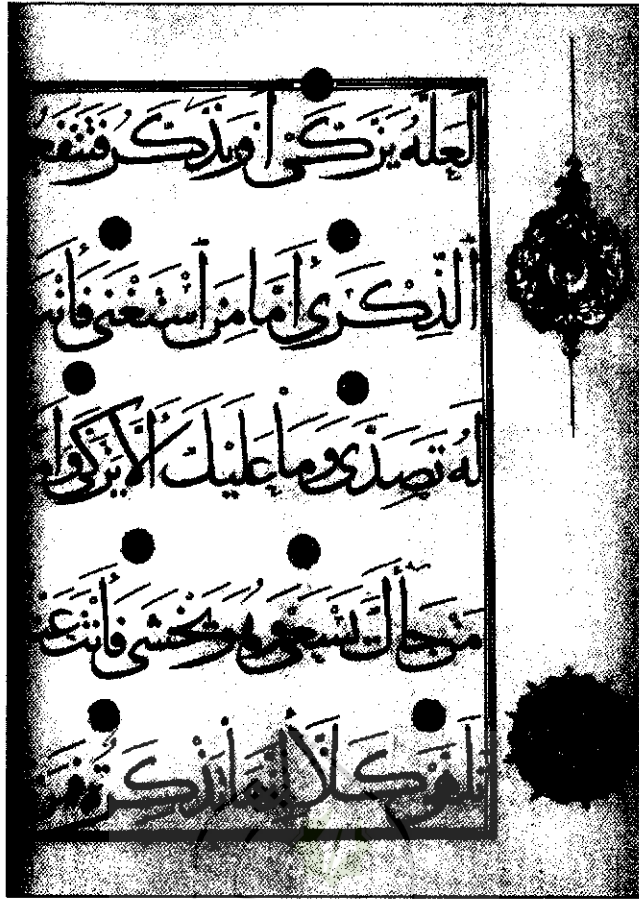 لَعَلَّهُ يَزَّكَّى أَوْ يَذَّكَّرُ
الذِّكْرَى أَمَّا مَنِ اسْتَغْنَى فَأَنْتَ
لَهُ تَصَدَّى وَمَا عَلَيْكَ أَلَّا يَزَّكَّى
مَنْ جَاءَكَ يَسْعَى وَهُوَ يَخْشَى فَأَنْتَ
تَلَهَّى كَلَّا إِنَّهَا تَذْكِرَةٌ